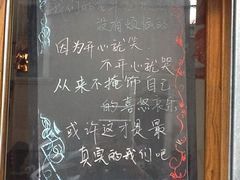 没有烦恼的
因为开心就笑
不开心就哭
从来不掩饰自己
的喜怒哀乐
或许这才是最
真实的我们吧